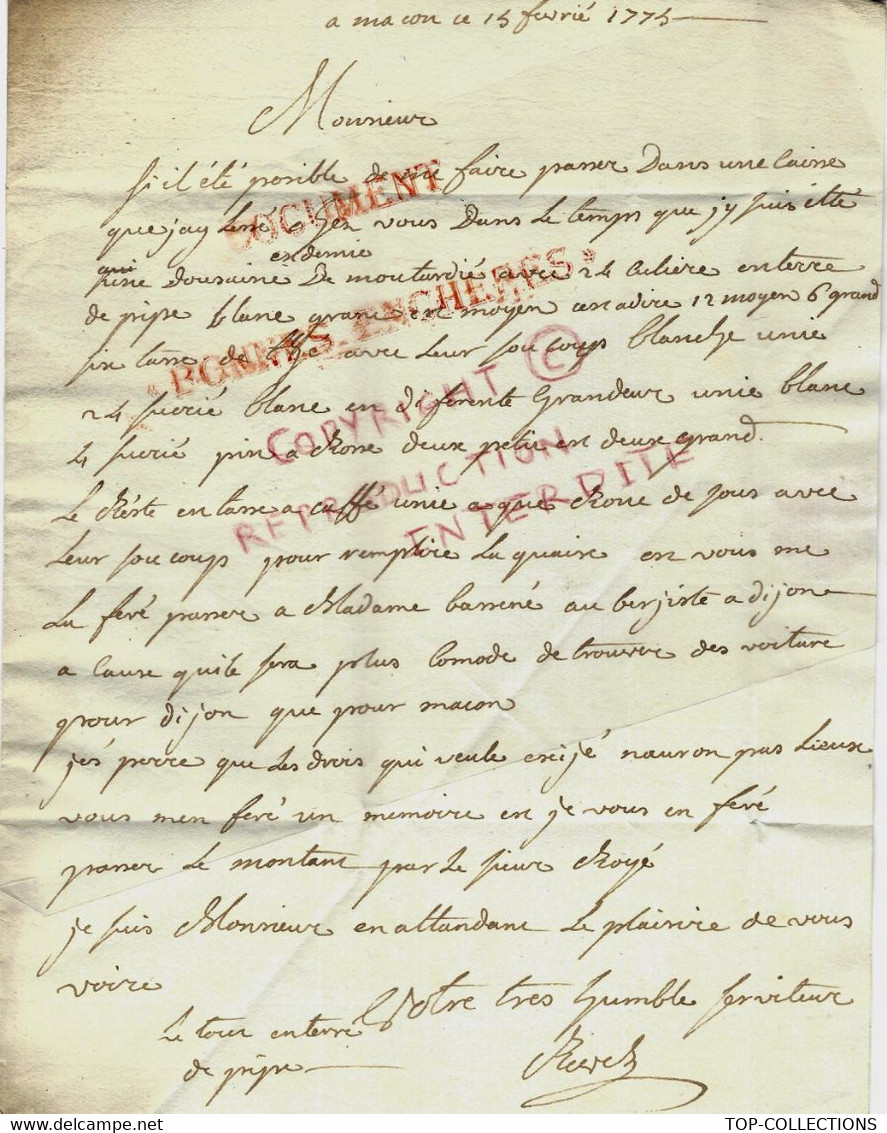 a macon ce 15 fevrié 1775
Monsieur
si il été posible de me faire passer Dans une Caisse
que jay lessé chez vous Dans le temps que jy suis étté
en demie
une dousaine De moutardié avec 24 culiere en terre
de pipe blanc grand et moyen cest a dire 12 moyen 6 grand
six tasse de thé avec leur soucoup blanche unie
24 sucrié blanc en diferente Grandeur unie blanc
4 sucrié pin a Rose deux petit et deux grand.
Le Réste en tasse a caffé unie a que Roue de jous avec
Leur soucoup pour remplire la quaise et vous me
La feré passer a Madame bassené au berjiste a dijon
a Cause quil sera plus Comode de trouver des voiture
pour dijon que pour macon
jés perre que Les drois qui veule exijé nauron pas Lieux
vous men feré un memoire et je vous en feré
passer Le montant par Le sieur Royé
je suis Monsieur en attandant Le plaisire de vous
voire
Votre tres humble serviteur
Le tout en terre
de pipe
DOCUMENT
BONNES ENCHERES
COPYRIGHT ©
REPRODUCTION
INTERDITE
TOP-COLLECTIONS